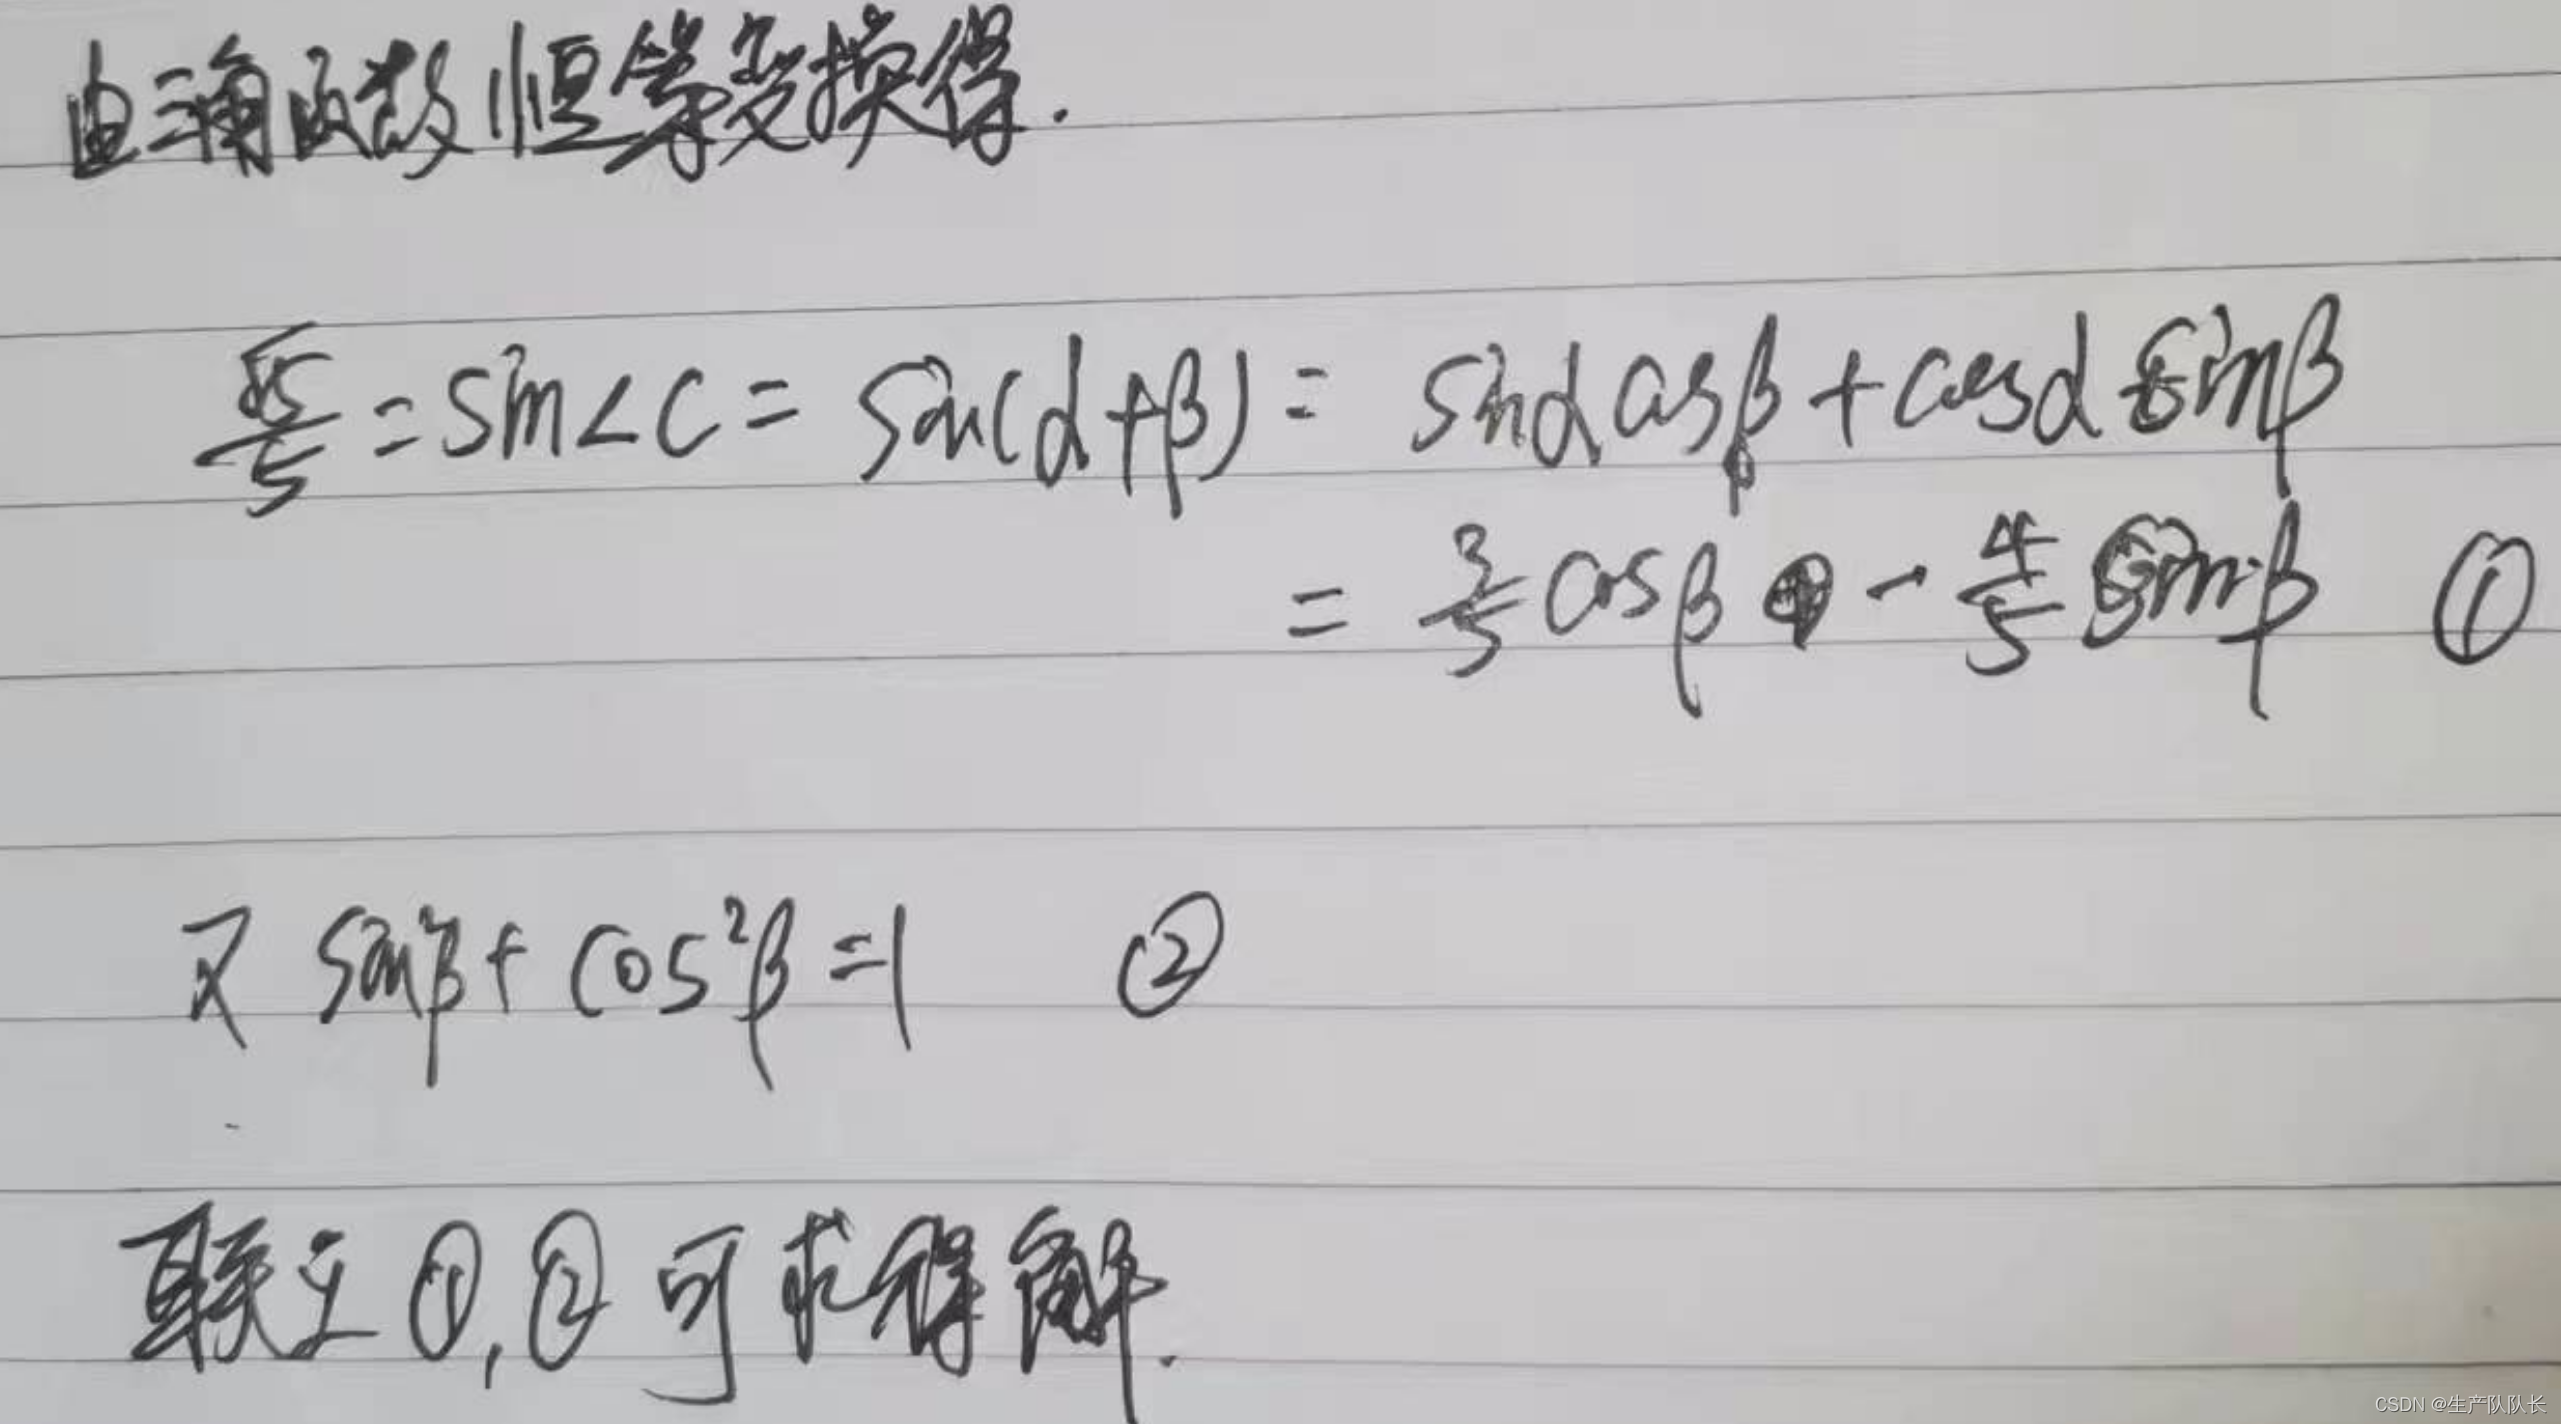 由三角函数恒等变换得.
√5/5 = sin∠C = sin(α+β) = sinα cosβ + cosα sinβ
= 3/5 cosβ - 4/5 sinβ ①
又 sin²β + cos²β = 1 ②
联立①,②可求得解.
CSDN @生产队队长